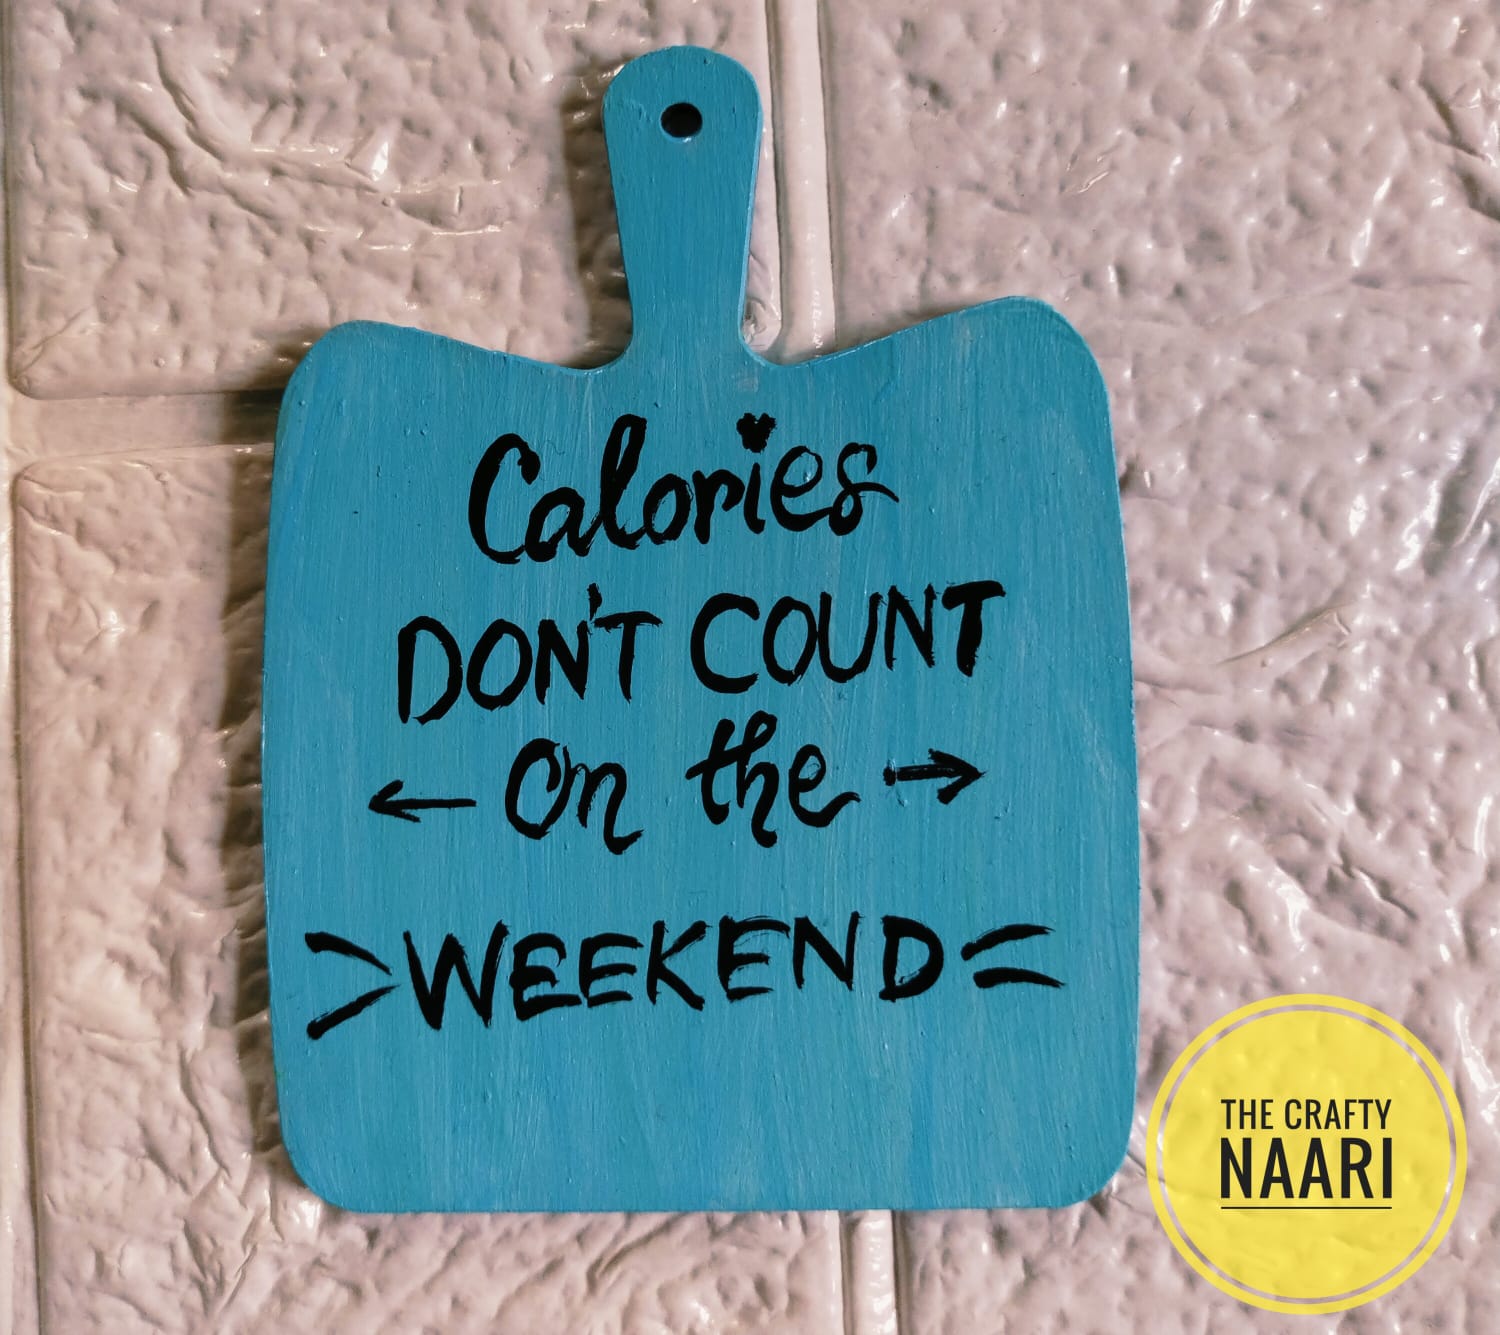 Calories
DON'T COUNT
on the
WEEKEND
THE CRAFTY
NAARI